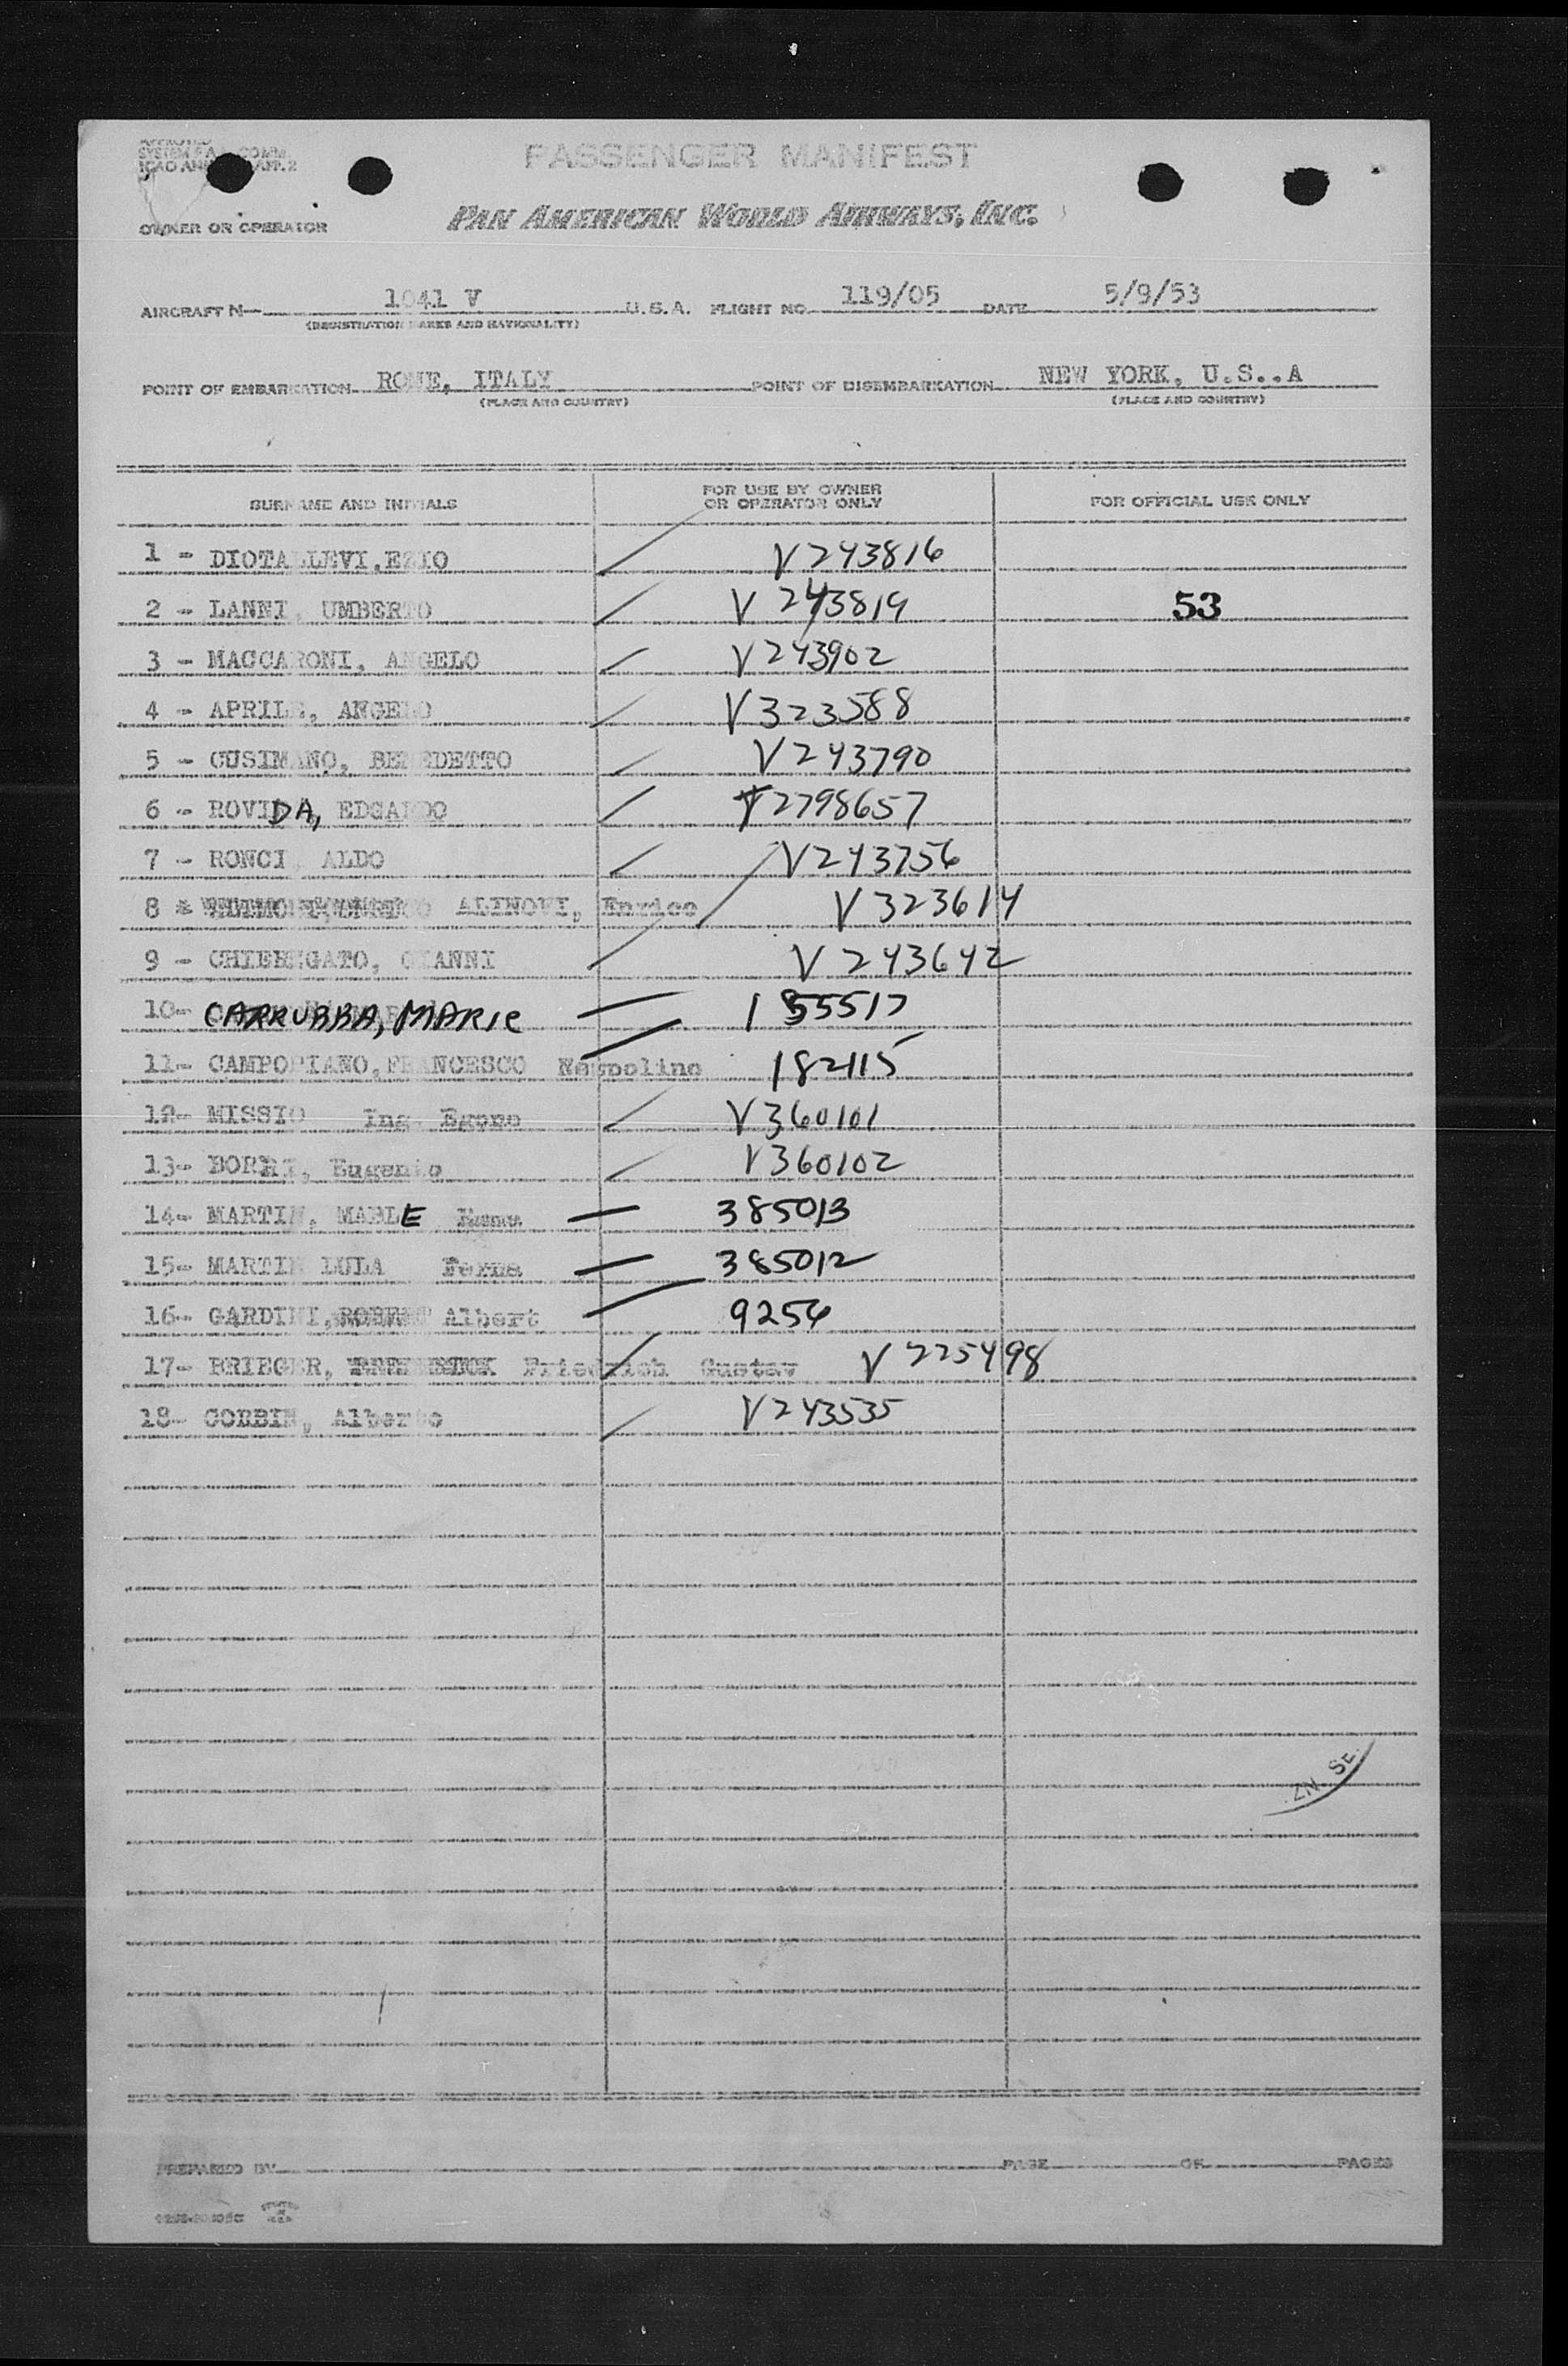 APPROVED
SYSTEM P.A. COMM.
ICAO ANN APP. 2
PASSENGER MANIFEST
OWNER OR OPERATOR PAN AMERICAN WORLD AIRWAYS, INC.
AIRCRAFT N— 1041 V U.S.A. FLIGHT NO. 119/05 DATE 5/9/53
(REGISTRATION MARKS AND NATIONALITY)
POINT OF EMBARKATION ROME, ITALY POINT OF DISEMBARKATION NEW YORK, U.S..A
(PLACE AND COUNTRY) (PLACE AND COUNTRY)
SURNAME AND INITIALS FOR USE BY OWNER OR OPERATOR ONLY FOR OFFICIAL USE ONLY
1 - DIOTALLEVI, EZIO V243816
2 - LANNI, UMBERTO V 243819 53
3 - MACCARONI, ANGELO V243902
4 - APRILE, ANGELO V323588
5 - CUSIMANO, BENEDETTO V243790
6 - ROVIDA, EDGARDO T2798657
7 - RONCI, ALDO V243756
8 - ALINOVI, Enrico V323614
9 - CHIEREGATO, GIANNI V 243642
10- CARRUBBA, MARIE 155517
11- CAMPOPIANO, FRANCESCO 182115
12- MISSIO Ing. Egone V360101
13- BORRI, Eugenio V360102
14- MARTIN, MABLE 385013
15- MARTIN LULA Ferne 385012
16- GARDINI, Albert 9256
17- BRIEGER, Friedrich Gustav V 225498
18- CORBIN, Alberto V243535
ZN. SE.
PREPARED BY PAGE OF PAGES
PRINTED IN U.S.A.